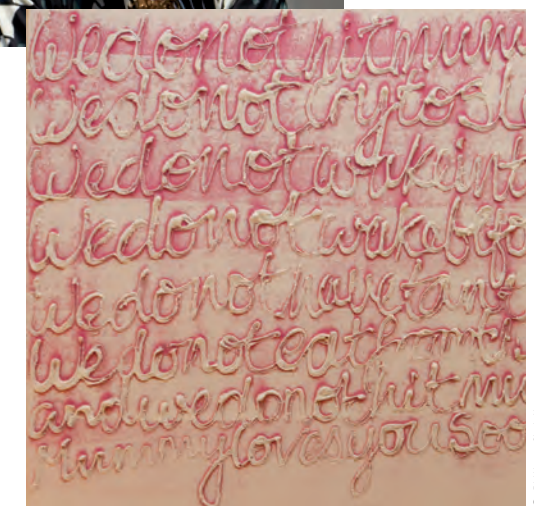 wedonothitmumm
wedonotcrytosl
wedonotwakeint
wedonotwakebefo
wedonothavetan
wedonoteat
andwedonothitmu
mummylovesyousoo